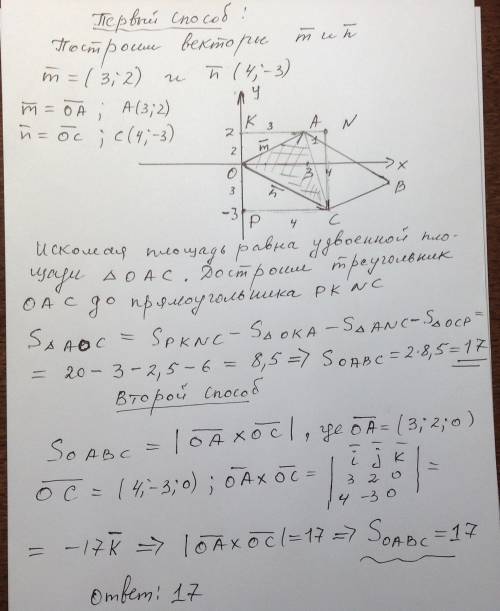 Первый способ:
Построим векторы m̅ и n̅
m̅ = (3; 2) и n̅ (4; -3)
m̅ = O̅A̅ ; A(3; 2)
n̅ = O̅C̅ ; C(4; -3)
y
K 3 A N
2 m̅ 1
2
O 3 4 x
3 n̅ B
-3
P 4 C
Искомая площадь равна удвоенной пло-
щади △OAC. Достроим треугольник
OAC до прямоугольника PKNC
S△AOC = SPKNC - S△OKA - S△ANC - S△OCP =
= 20 - 3 - 2,5 - 6 = 8,5 => SOABC = 2·8,5 = 17
Второй способ
SOABC = |O̅A̅ x O̅C̅|, где O̅A̅ = (3; 2; 0)
O̅C̅ = (4; -3; 0) ; O̅A̅ x O̅C̅ = | i̅ j̅ k̅ | =
3 2 0
4 -3 0
= -17k̅ => |O̅A̅ x O̅C̅| = 17 => SOABC = 17
Ответ: 17